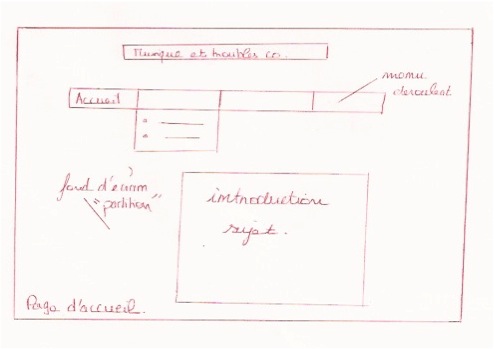 Musique et troubles co.
Accueil
menu
deroulent
fond d'écran
"partition"
introduction
sujet.
Page d'accueil.